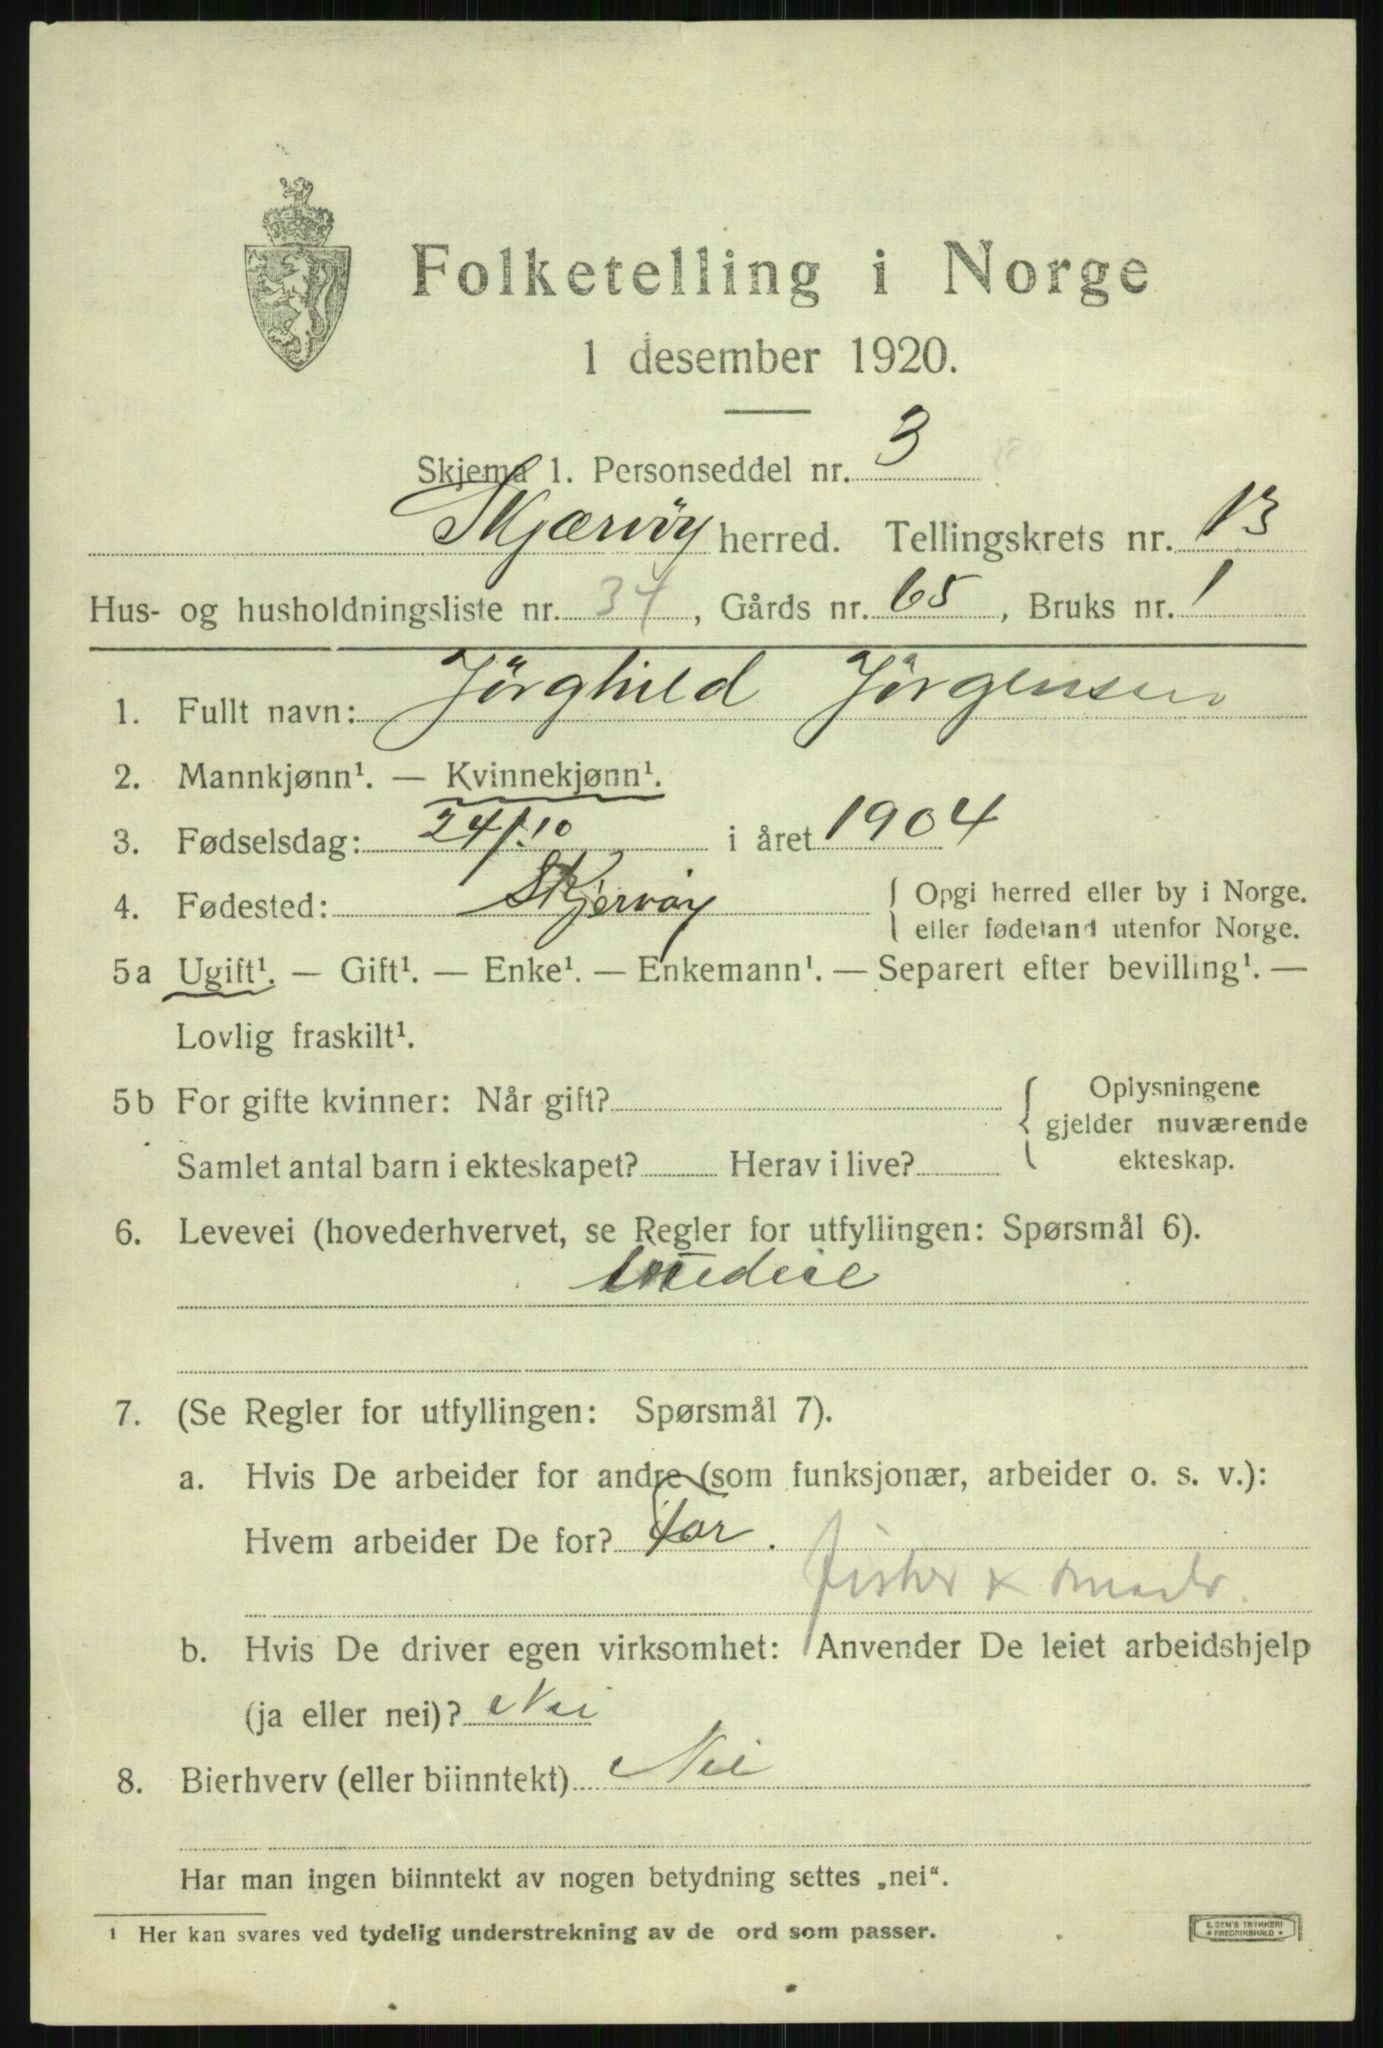 Folketelling i Norge
1 desember 1920.
Skjema 1. Personseddel nr. 3
Skjærvöy herred. Tellingskrets nr. 13
Hus- og husholdningsliste nr. 34, Gårds nr. 65, Bruks nr. 1
1. Fullt navn: Jörghild Jörgensen
2. Mannkjønn¹. — Kvinnekjønn¹.
3. Fødselsdag: 24/10 i året 1904
4. Fødested: Skjervöy { Opgi herred eller by i Norge.
eller fødeland utenfor Norge.
5a Ugift¹. — Gift¹. — Enke¹. — Enkemann¹. — Separert efter bevilling¹. —
Lovlig fraskilt¹.
5b For gifte kvinner: Når gift? { Oplysningene
gjelder nuværende
Samlet antal barn i ekteskapet? Herav i live? ekteskap.
6. Levevei (hovederhvervet, se Regler for utfyllingen: Spørsmål 6).
7. (Se Regler for utfyllingen: Spørsmål 7).
a. Hvis De arbeider for andre (som funksjonær, arbeider o. s. v.):
Hvem arbeider De for? far.
fisker x
b. Hvis De driver egen virksomhet: Anvender De leiet arbeidshjelp
(ja eller nei)? Nei
8. Bierhverv (eller biinntekt) Nei
Har man ingen biinntekt av nogen betydning settes „nei“.
¹ Her kan svares ved tydelig understrekning av de ord som passer.
E. SEM'S TRYKKERI
* FREDRIKSHALD *